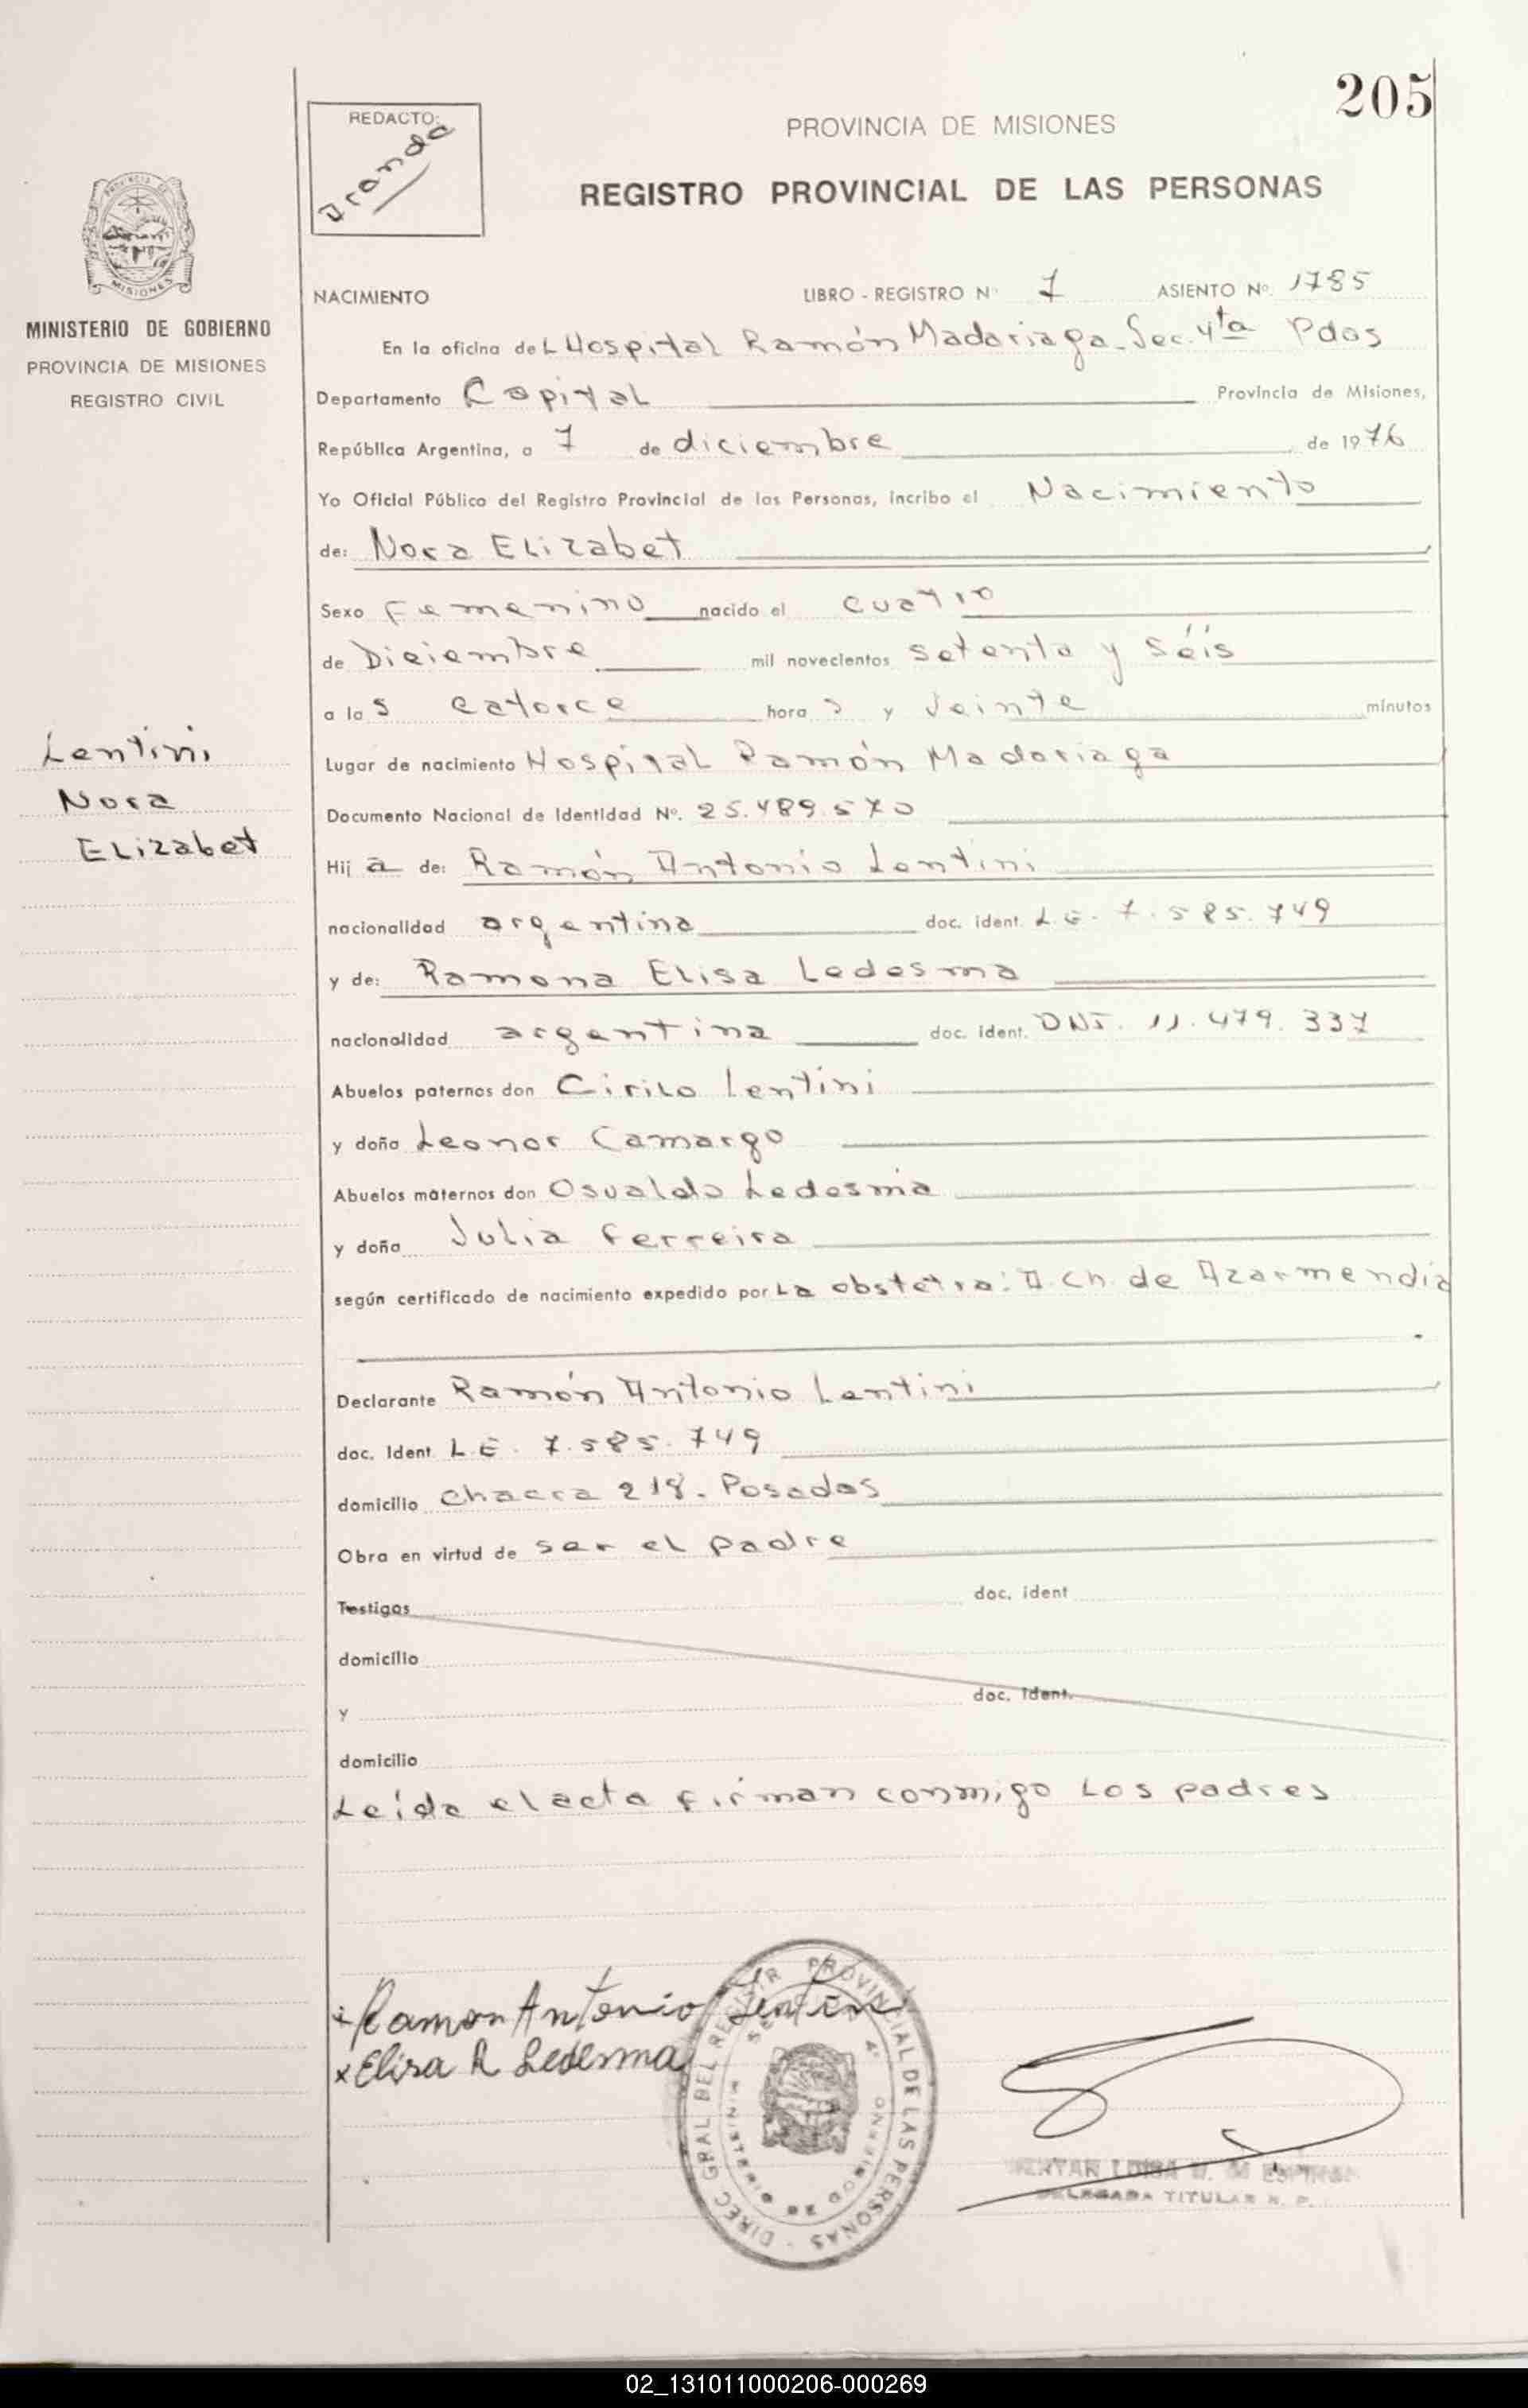 205
REDACTO:
PROVINCIA DE MISIONES
REGISTRO PROVINCIAL DE LAS PERSONAS
MISIONES
MINISTERIO DE GOBIERNO
PROVINCIA DE MISIONES
REGISTRO CIVIL
NACIMIENTO LIBRO - REGISTRO Nº 7 ASIENTO Nº. 1785
En la oficina del Hospital Ramón Madariaga - Sec. 4ta Pdas
Departamento Capital Provincia de Misiones,
República Argentina, a 7 de diciembre de 1976
Yo Oficial Público del Registro Provincial de las Personas, incribo el Nacimiento
de: Nora Elizabet
Sexo Femenino nacido el cuatro
de Diciembre mil novecientos setenta y séis
a las catorce horas y veinte minutos
Lentini
Nora
Elizabet
Lugar de nacimiento Hospital Ramón Madariaga
Documento Nacional de Identidad Nº. 25.489.570
Hija de: Ramón Antonio Lentini
nacionalidad argentina doc. ident. L.E. 7.585.749
y de: Ramona Elisa Ledesma
nacionalidad argentina doc. ident. DNI. 11.479.337
Abuelos paternos don Cirilo Lentini
y doña Leonor Camargo
Abuelos maternos don Osvaldo Ledesma
y doña Julia Ferreira
según certificado de nacimiento expedido por La obstetra: A. Ch. de Azarmendia
Declarante Ramón Antonio Lentini
doc. Ident. L.E. 7.585.749
domicilio Chacra 218. Posadas
Obra en virtud de ser el padre
Testigos doc. ident
domicilio
y doc. ident.
domicilio
Leída el acta firman conmigo Los padres
Ramon Antonio Lentini
x Elisa R Ledesma
DIREC GRAL DEL REGISTR PROVINCIAL DE LAS PERSONAS
MINISTERIO DE GOBIERNO
DELEGADA TITULAR R. P.
02_131011000206-000269